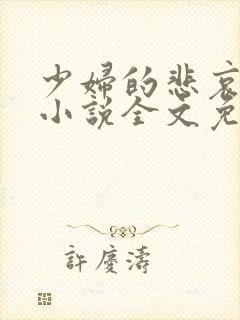 少婦的悲哀
小說全文免
許慶濤